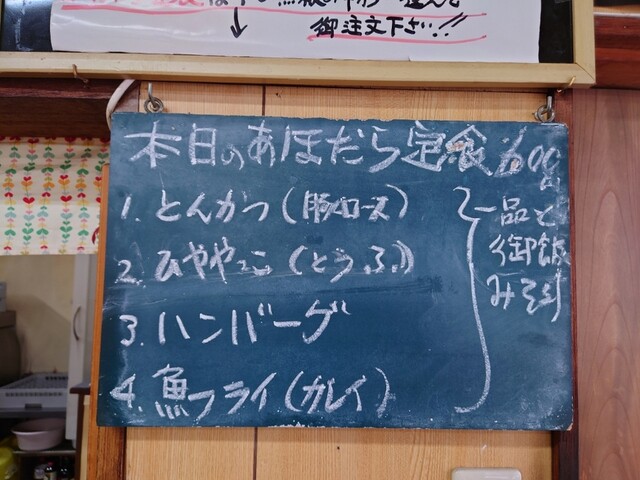 御注文下さい!!
本日のあほだら定食
1. とんかつ(豚ロース)
2. ひややっこ(とうふ)
3. ハンバーグ
4. 魚フライ(カレイ)
一品と
御飯
みそ汁